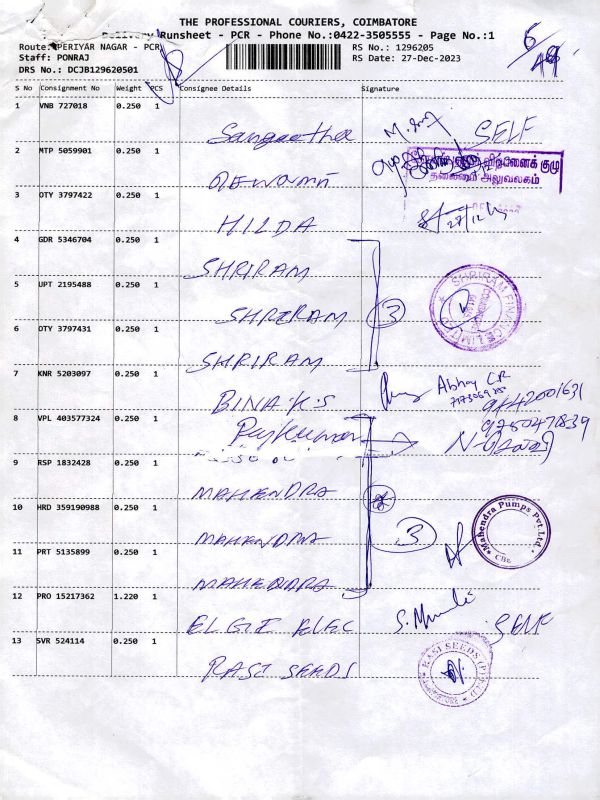 THE PROFESSIONAL COURIERS, COIMBATORE
Delivery Runsheet - PCR - Phone No.:0422-3505555 - Page No.:1
Route: PERIYAR NAGAR - PCR RS No.: 1296205
Staff: PONRAJ RS Date: 27-Dec-2023
DRS No.: DCJB129620501
6/49
S No Consignment No Weight PCS Consignee Details Signature
1 VNB 727018 0.250 1
Sangeetha SELF
2 MTP 5059901 0.250 1
தலைமை அலுவலகம்
3 OTY 3797422 0.250 1
HILDA 27/12
4 GDR 5346704 0.250 1
SHRIRAM
5 UPT 2195488 0.250 1
SHRIRAM 3
SHRIRAM FINANCE LIMITED
6 OTY 3797431 0.250 1
SHRIRAM
7 KNR 5203097 0.250 1
BINA K.S Abhay C.R
9442001631
8 VPL 403577324 0.250 1
Rajkumar 9750471839
9 RSP 1832428 0.250 1
MAHENDRA
10 HRD 359190988 0.250 1
MAHENDRA 3
Mahendra Pumps Pvt.Ltd. CBE
11 PRT 5135899 0.250 1
MAHENDRA
12 PRO 15217362 1.220 1
ELGI ELEC SELF
13 SVR 524114 0.250 1
RASI SEEDS
RASI SEEDS (P) LTD